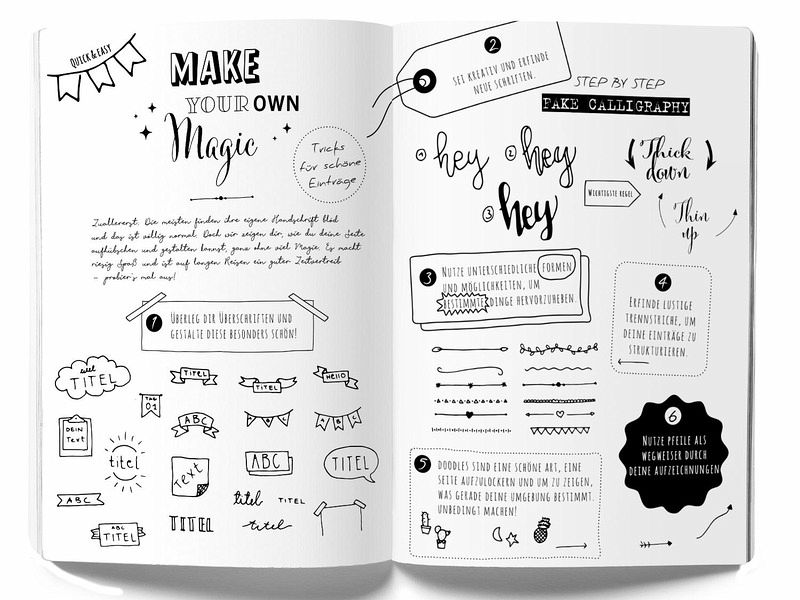 QUICK & EASY
MAKE
YOUR OWN
Magic
Tricks
für schöne
Einträge
Zuallererst: Die meisten finden ihre eigene Handschrift blöd
und das ist völlig normal. Doch wir zeigen dir, wie du deine Seite
aufhübschen und gestalten kannst, ganz ohne viel Magie. Es macht
riesig Spaß und ist auf langen Reisen ein guter Zeitvertreib
– probier's mal aus!
1
ÜBERLEG DIR ÜBERSCHRIFTEN UND
GESTALTE DIESE BESONDERS SCHÖN!
TITEL
TITEL
TITEL
Hello
TAG
01
DEIN
Text
ABC
ABC
ABC
titel
Text
ABC
TITEL
ABC
titel
TITEL
ABC
TITEL
TITEL
titel
2
SEI KREATIV UND ERFINDE
NEUE SCHRIFTEN.
STEP BY STEP
FAKE CALLIGRAPHY
1 hey
2 hey
3 hey
WICHTIGSTE REGEL
Thick
down
Thin
up
3
NUTZE UNTERSCHIEDLICHE FORMEN
UND MÖGLICHKEITEN, UM
BESTIMMTE DINGE HERVORZUHEBEN.
4
ERFINDE LUSTIGE
TRENNSTRICHE, UM
DEINE EINTRÄGE ZU
STRUKTURIEREN.
5
DOODLES SIND EINE SCHÖNE ART, EINE
SEITE AUFZULOCKERN UND UM ZU ZEIGEN,
WAS GERADE DEINE UMGEBUNG BESTIMMT.
UNBEDINGT MACHEN!
6
NUTZE PFEILE ALS
WEGWEISER DURCH
DEINE AUFZEICHNUNGEN